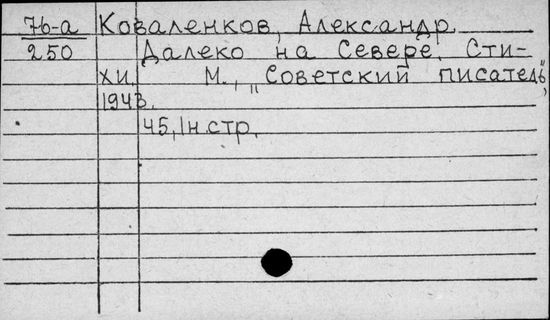 76-а Коваленков, Александр.
250 Далеко на Севере. Сти-
хи. М., „Советский писатель",
1943.
45, 1 н. стр.